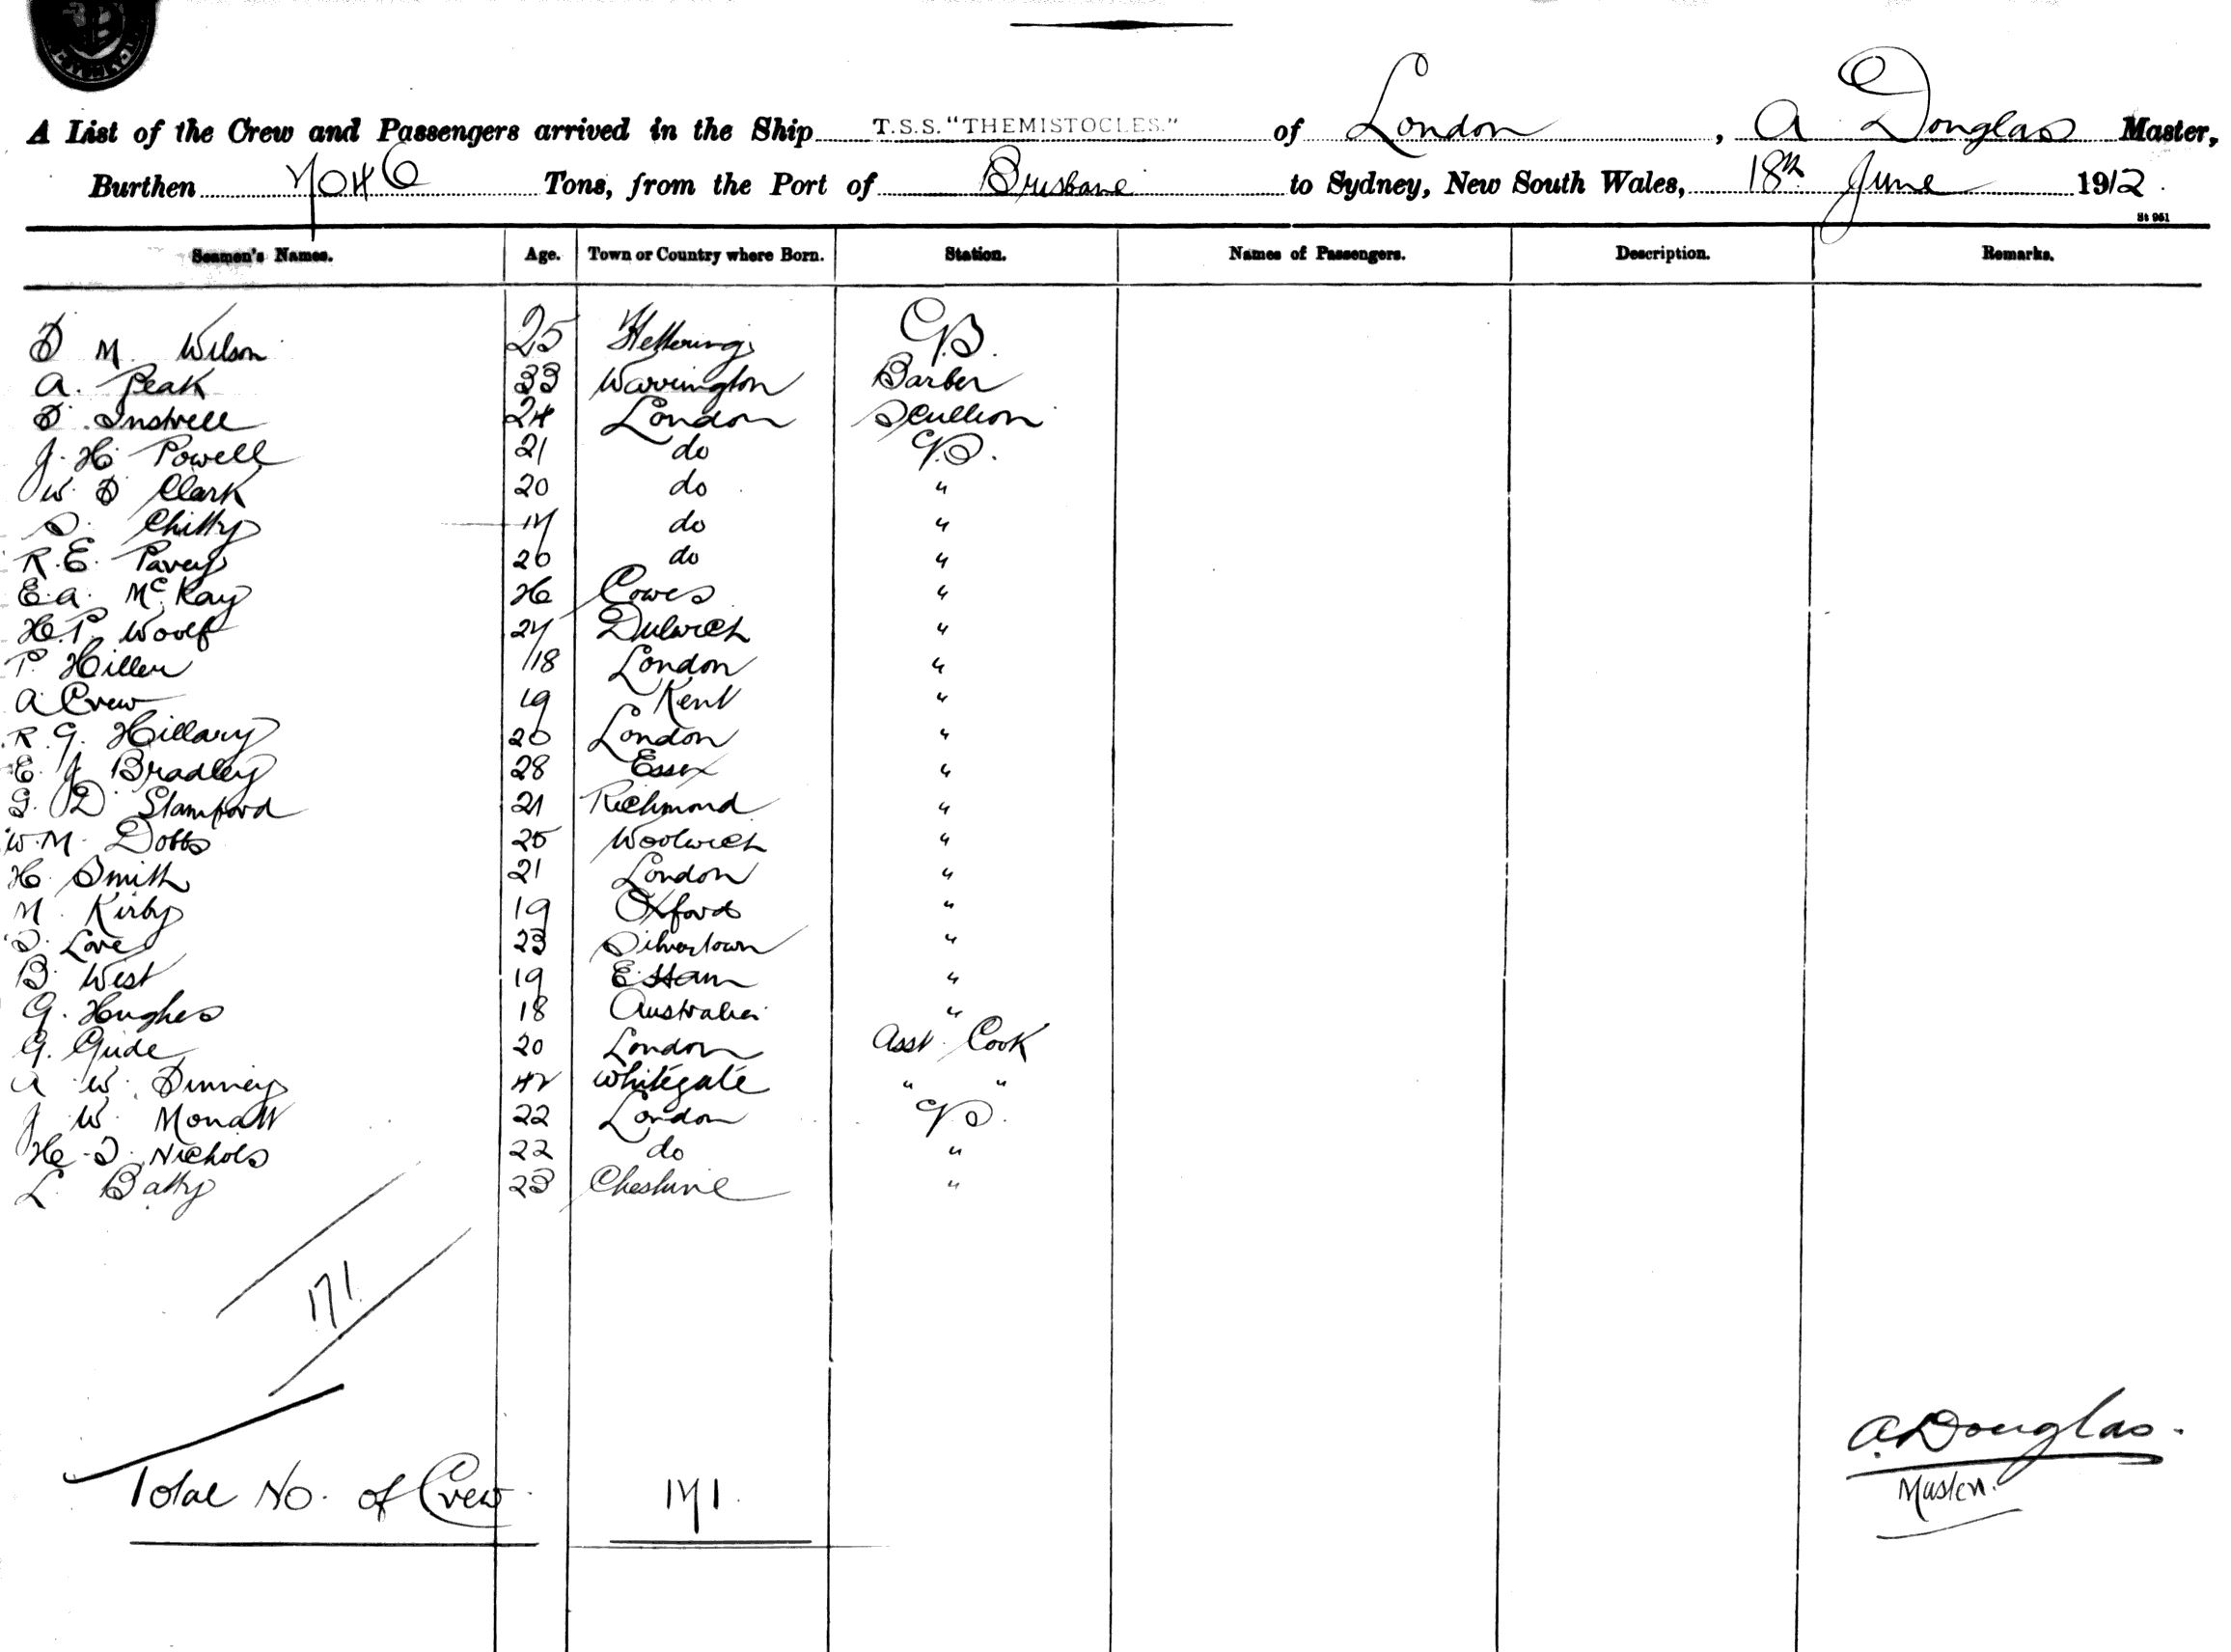 A List of the Crew and Passengers arrived in the Ship T.S.S. "THEMISTOCLES." of London, A Douglas Master,
Burthen 7046 Tons, from the Port of Brisbane to Sydney, New South Wales, 18th June 1912.
St 951
Seamen's Names. Age. Town or Country where Born. Station. Names of Passengers. Description. Remarks.
D M Wilson 25 Kettering
A. Peak 33 Warrington Barber
D. Instrell 24 London Scullion
J. H. Powell 21 do
W. D Clark 20 do "
S. Chitty 17 do "
R. E. Pavey 20 do "
E. A. McKay Cowes "
H. P. Woolf 27 Dulwich "
P. Hiller 18 London "
A Crew 19 Kent "
R G. Hillary 20 London "
E. J Bradley 28 Essex "
G. D Stamford 21 Richmond "
W. M. Dobbs 25 Woolwich "
H. Smith 21 London "
M. Kirby 19 Oxford "
Love 23 Silvertown "
B. West 19 "
G. Hughes 18 Australia "
G. Gude 20 London Asst. Cook
A W. Dinney 42 Whitegate " "
J W. Monatt 22 London
H. Nichols 22 do "
L. Batty 23 Cheshire "
171
Total No. of Crew 171.
A. Douglas.
Master.